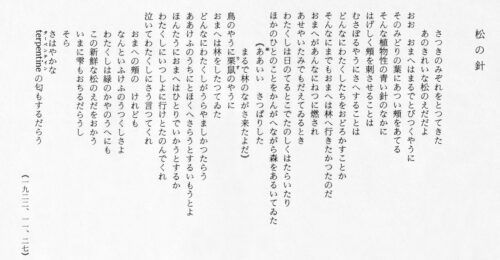 松の針
さつきのみぞれをとつてきた
あのきれいな松のえだだよ
おお おまへはまるでとびつくやうに
そのみどりの葉にあつい頬をあてる
そんな植物性の青い針のなかに
はげしく頬を刺させることは
むさぼるやうにさへすることは
どんなにわたくしたちをおどろかすことか
そんなにまでもおまへは林へ行きたかつたのだ
おまへがあんなにねつに燃され
あせやいたみでもだえてゐるとき
わたくしは日のてるとこでたのしくはたらいたり
ほかのひとのことをかんがへながら森をあるいてゐた
(ああいい さつぱりした
まるで林のながさ来たよだ)
鳥のやうに栗鼠のやうに
おまへは林をしたつてゐた
どんなにわたくしがうらやましかつたらう
ああけふのうちにとほくへさらうとするいもうとよ
ほんたうにおまへはひとりでいかうとするか
わたくしにいつしよに行けとたのんでくれ
泣いてわたくしにさう言つてくれ
おまへの頬の けれども
なんといふけふのうつくしさよ
わたくしは緑のかやのうへにも
この新鮮な松のえだをおかう
いまに雫もおちるだらうし
そら
さはやかな
ターペンティン
terpentine の匂もするだらう
(一九二二、一一、二七)